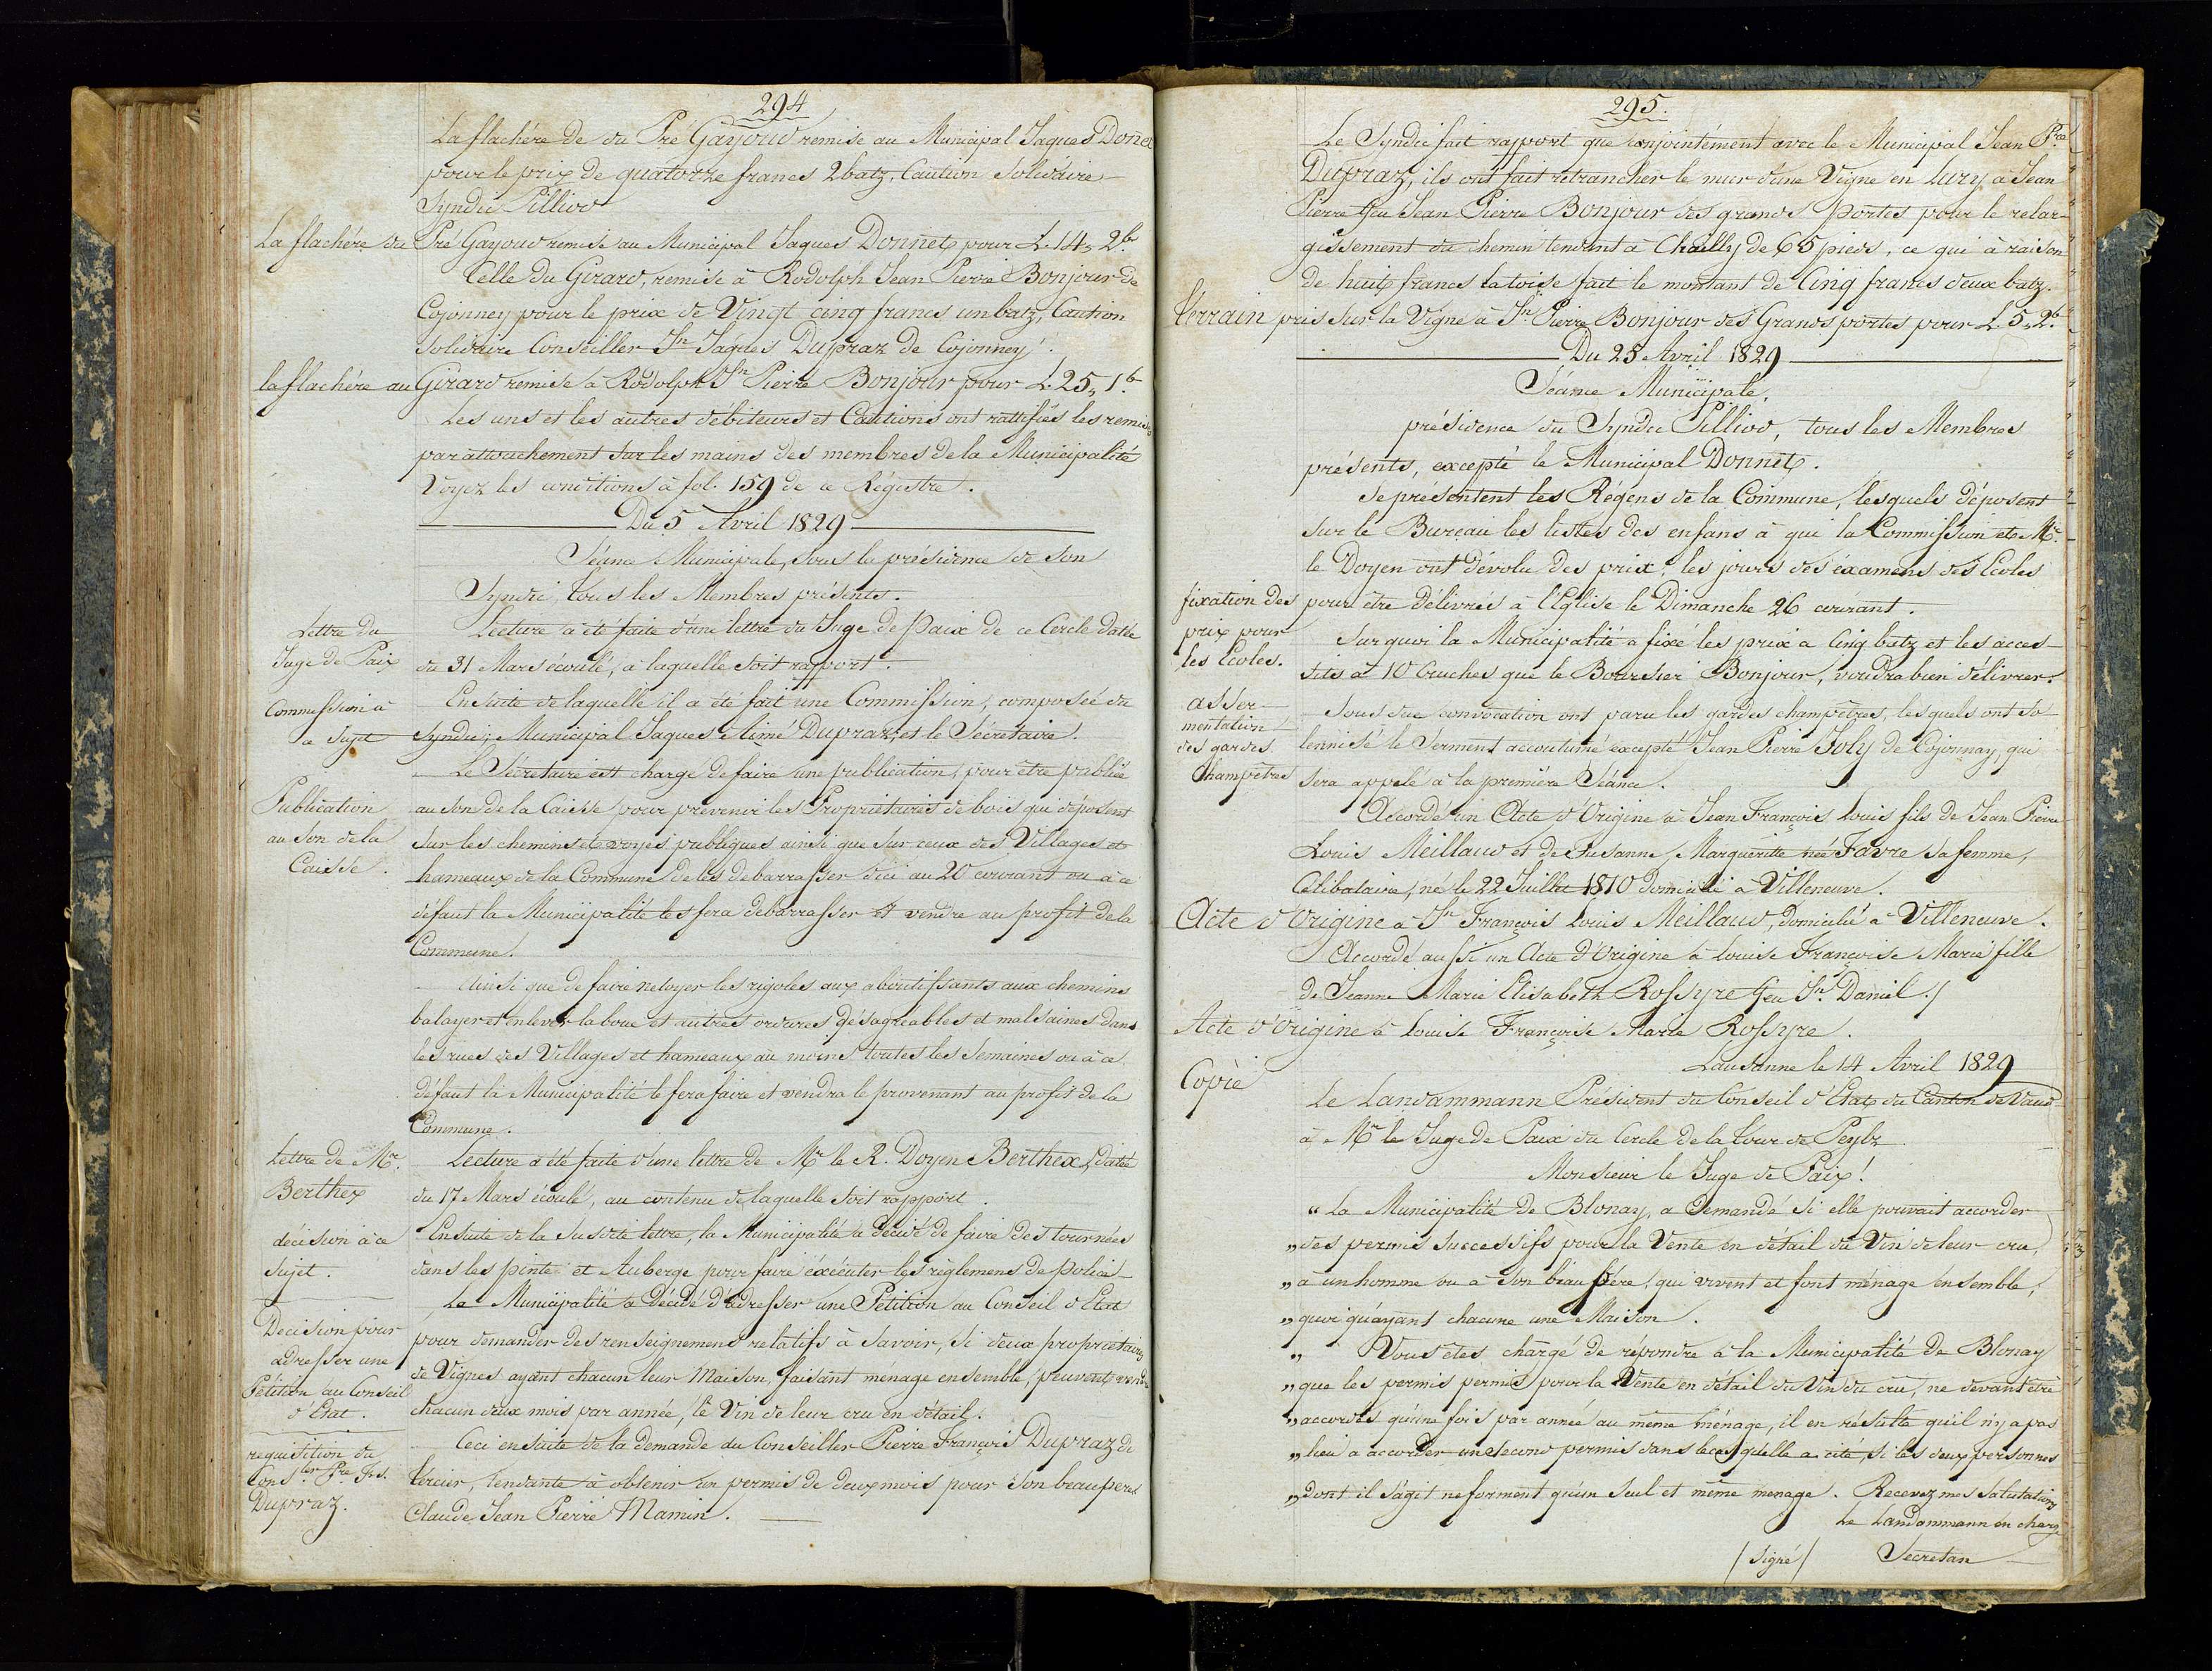 294
La flachére de du Pré Gayoud remise au Municipal Jaques Donet
pour le prix de quatorze francs 2 batz, Caution Solidaire
Syndic Pilliod
La flachére du Pré Gayoud remise au Municipal Jaques Donnet pour L. 14,, 2 b.
Celle du Girard, remise à Rodolph Jean Pierre Bonjour de
Cojonney pour le prix de Vingt cinq francs un batz, Caution
Solidaire Conseiller Jn Jaques Dupraz de Cojonney.
la flachére au Girard remise à Rodolph Jn Pierre Bonjour pour L. 25,, 1. b
Les uns et les autres débiteurs et Cautions ont rattifiés les remises
par attouchement sur les mains des membres de la Municipalité
Voyez les conditions à fol. 159 de ce Régistre.
Du 5 Avril 1829
Séance Municipale, sous la présidence de son
Syndic, tous les Membres présents.
Lettre du
Juge de Paix
Lecture a été faite d'une lettre du Juge de Paix de ce Cercle datée
du 31 Mars écoulé, a laquelle soit rapport.
Commission à
ce Sujet
Ensuite de laquelle il a été fait une Commission, composée du
Syndic, Municipal Jaques Aimé Dupraz, et le Sécretaire.
Publication
au Son de la
Caisse.
Le Sécretaire est chargé de faire une publication, pour être publiée
au son de la Caisse pour prévenir les Propriétaires de bois qui déposent
sur les chemins et voyes publiques ainsi que sur ceux des Villages et
hameaux de la Commune de les debarrasser dici au 20 courant ou à ce
défaut la Municipalité les fera debarrasser et vendre au profit de la
Commune.
Ainsi que de faire netoyer les rigoles aux aboutissants aux chemins
balayer et enlever la boue et autres ordures désagreables et mal saines dans
les rues des Villages et hameaux au moins toutes les Semaines ou à ce
défaut la Municipalité le fera faire et vendra le provenant au profit de la
Commune.
Lettre de Mr.
Berthex
Lecture a été faite d'une lettre de Mr le R. Doyen Berthex, datée
du 17 Mars écoulé, au contenu de laquelle soit rapport.
décision à ce
Sujet.
Ensuite de la Susdite lettre, la Municipalité a décidé de faire des tournées
dans les pinte et Auberge pour faire éxécuter les règlemens de police
Decision pour
adresser une
Pétition au Conseil
d'Etat.
La Municipalité a Décidé d'adresser une Pétition au Conseil d'Etat
pour demander des renseignemens relatifs à savoir, Si deux propriétaires
de Vignes ayant chacun leur Maison, faisant ménage ensemble, peuvent vendre
chacun deux mois par année, le Vin de leur cru en détail.
requisition du
Conser. Pre Frs.
Dupraz.
Ceci ensuite de la demande du Conseiller Pierre François Dupraz de
Tercier, tendante à obtenir un permis de deux mois pour Son beau pere
Claude Jean Pierre Mamin.
295.
Le Syndic fait rapport que conjointément avec le Municipal Jean Pre
Dupraz, ils ont fait retrancher le mur d'une Vigne en Lury a Jean
Pierre feu Jean Pierre Bonjour des grands Portes pour le relar-
gissement du chemin tendant à Chailly de 65 pieds, ce qui à raison
de huit francs la toise fait le montant de Cinq francs deux batz.
Terrain pris sur la Vigne à Jn Pierre Bonjour des Grands portes pour L. 5,, 2. b
Du 25 Avril 1829
Séance Municipale,
présidence du Syndic Pilliod, tous les Membres
présents, excepté le Municipal Donnet.
Se présentent les Régens de la Commune, lesquels déposent
sur le Bureau les listes des enfans à qui la Commission et Mr.
le Doyen ont dévolu des prix, les jours des éxamens des Ecoles
pour être délivrés à l'Eglise le Dimanche 26 courant.
fixation des
prix pour
les Ecoles.
Sur quoi la Municipalité a fixé les prix a Cinq batz et les acces-
sits à 10 Cruches que le Boursier Bonjour, voudra bien délivrer.
asser-
mentation
des gardes
Champêtres
Sous due convocation ont paru les gardes champêtres, lesquels ont so-
lennisé le Serment accoutumé excepté Jean Pierre Joly de Cojonnay, qui
sera appelé à la première Séance.
Accordé un Acte d'Origine à Jean François Louis fils de Jean Pierre
Louis Meillaud et de Susanne Margueritte née Favre Sa femme,
Célibataire, né le 22 Juillet 1810 Domicilié a Villeneuve.
Acte d'Origine a Jn François Louis Meillaud, Domicilié a Villeneuve.
Accordé aussi un Acte d'Origine à Louise Françoise Marie fille
de Jeanne Marie Elisabeth Rossyre feu Jn. Daniel ./
Acte d'Origine à Louise Françoise Marie Rossyre.
Lausanne le 14 Avril 1829
Copie
Le Landammann Président du Conseil d'Etat du Canton de Vaud
à Mr le Juge de Paix du Cercle de la Tour de Peylz
Monsieur le Juge de Paix!
“ La Municipalité de Blonay, a Demandé Si elle pouvait accorder
„ des permis Successifs pour la Vente en détail du Vin de leur cru,
„ à un homme ou à Son beau père, qui vivent et font ménage ensemble,
„ quoi qu'ayant chacune une Maison.
„ Vous etes chargé de répondre à la Municipalité de Blonay
„ que les permis permis pour la Vente en détail du Vin du cru, ne devant être
„ accordés qu'une fois par année au même ménage, il en résulte qu'il n'y a pas
„ lieu a accorder un second permis dans le cas qu'elle a cité, Si les deux personnes
„ dont il s'agit ne forment qu'un Seul et même menage. Recevez mes Salutations
Le Landammann en charge
/ Signé / Secretan